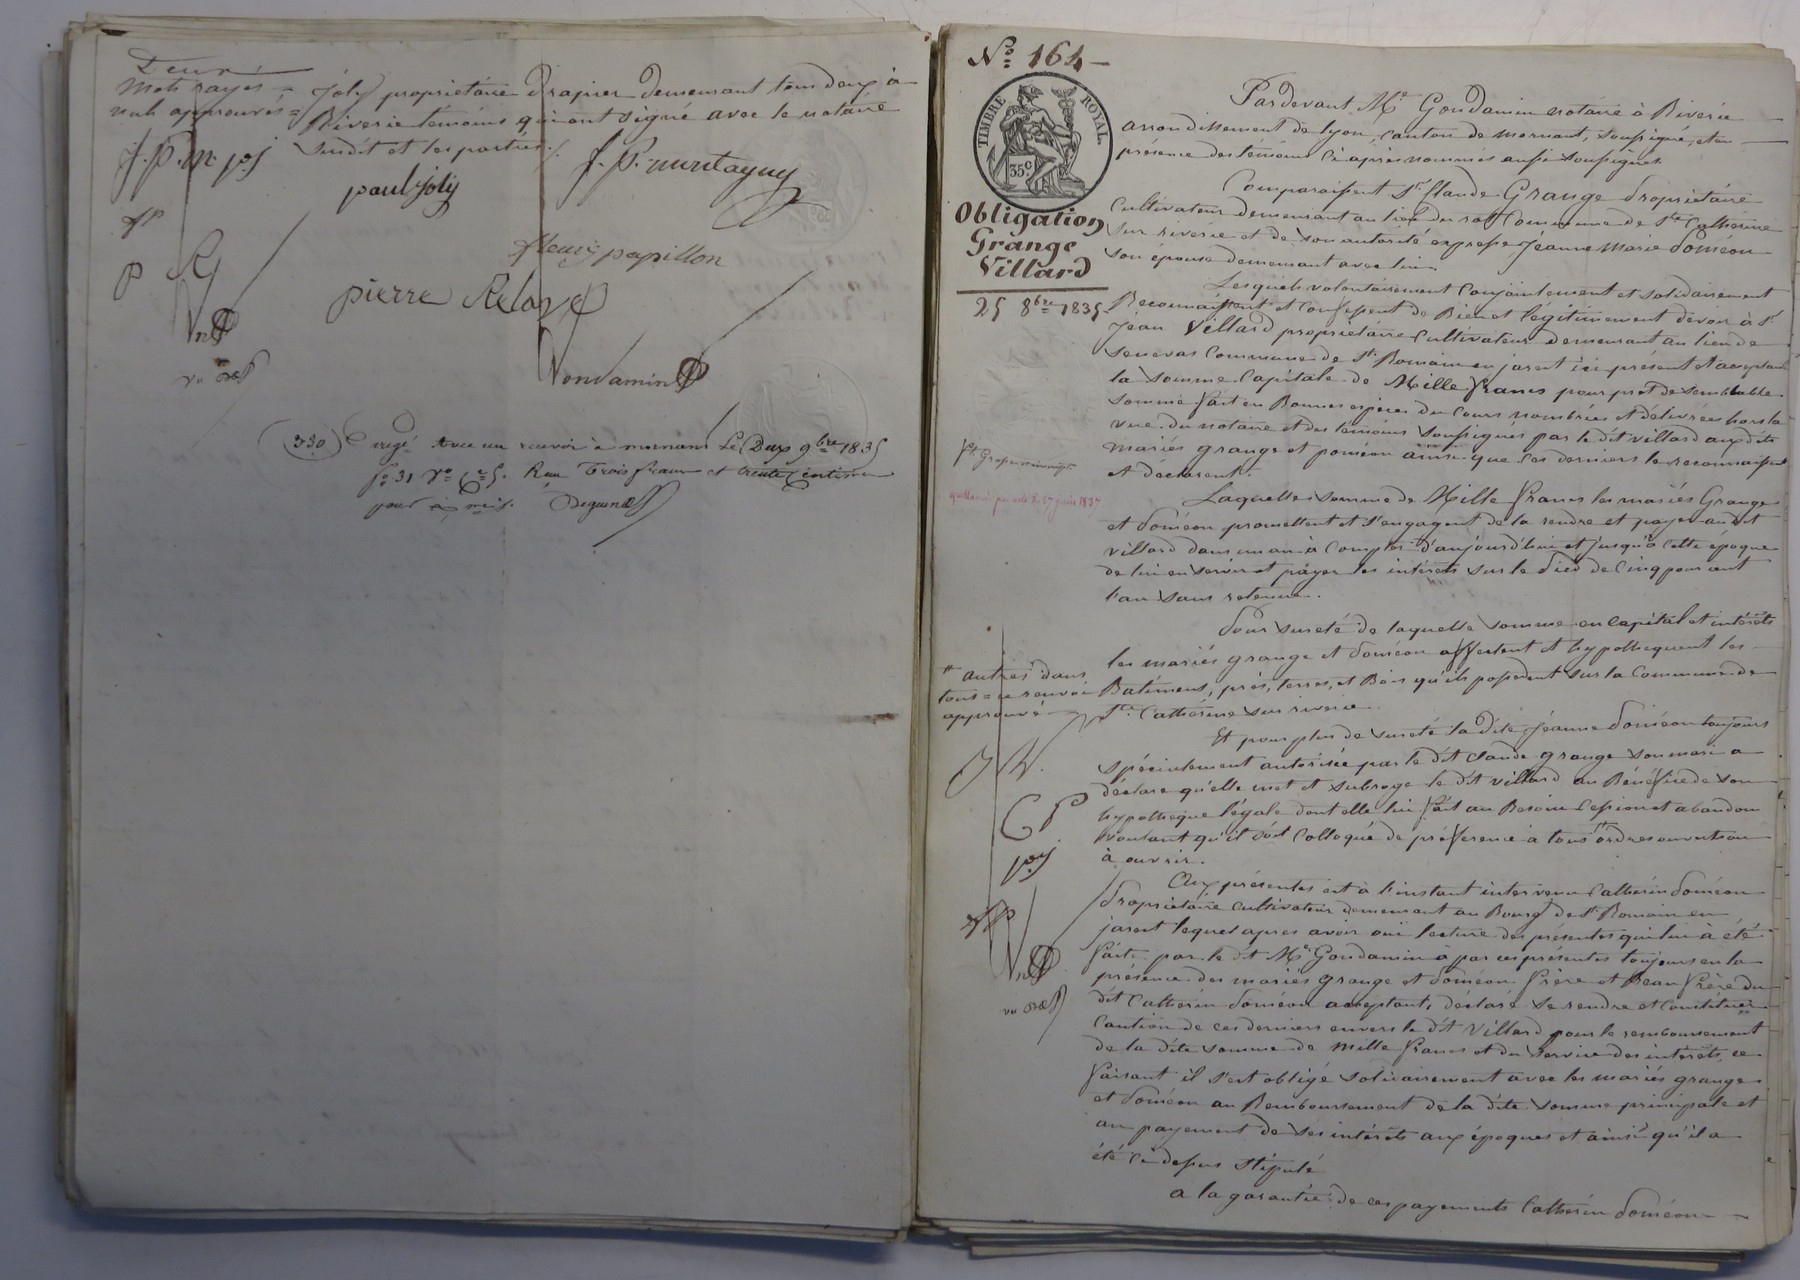 Deux
mots rayés =
nuls approuvés =
Joly propriétaire Drapier demeurant tous deux à
Riverie témoins qui ont signé avec le notaire
susdit et les parties
J. P. m. pj
paul joly
J. P. montagny
fleury papillon
pierre Relave
Gondamin
(330) Enregé avec un renvoi à mornant Le Deux 9bre 1835
fo. 31 Vo Ce 5. Reçu Trois francs et trente centimes
pour
No. 164
TIMBRE ROYAL
35 c.
Obligation
Grange
Villard
25 8bre 1835
Pardevant Me. Gondamin notaire à Riverie
arrondissement de Lyon, Canton de mornant, soussigné, et en
présence des témoins Ci après nommés aussi soussignés
Comparaissent Sr. Claude Grange Propriétaire
Cultivateur demeurant au lieu du rat Commune de Ste Catherine
sur riverie et de son autorité expresse Jeanne Marie Poméon
son épouse demeurant avec lui.
Lesquels volontairement Conjointement et solidairement
Reconnaissent et Confessent de Bien et légitimement devoir à Sr.
Jean Villard propriétaire Cultivateur demeurant au lieu de
senevas Commune de St. Romain en jarest ici présent et acceptant
la somme Capitale de Mille francs pour prêt de semblable
somme fait en Bonnes espèces du Cours nombrées et délivrées hors la
vue du notaire et des témoins soussignés par le dit villard aux dits
mariés grange et poméon ainsi que Ces derniers le reconnaissent
et declarent.
quittancé par acte du 17 juin 1837
Laquelle somme de Mille francs les mariés Grange
et Poméon promettent et s'engagent de la rendre et payer au dit
villard dans un an à Compter d'aujourd'hui et jusqu'à Cette époque
de lui en servir et payer les intérêts sur le Pied de Cinq pour cent
l'an sans retenue.
Pour sureté de laquelle somme en Capital et intérêts
les mariés grange et Poméon affectent et hypothequent les
Batiments, prés, terres, et Bois qu'ils possedent sur la Commune de
Ste. Catherine sur riverie.
# autres dans
tous = ce renvoi
approuvé
Et pour plus de sureté la dite Jeanne Poméon toujours
spécialement autorisée par le dit Claude grange son mari a
déclaré qu'elle met et subroge le dit villard au Bénéfice de son
hypothèque légale dont elle lui fait au Besoin Cession et abandon
voulant qu'il soit Colloqué de préférence à tous # ordres ouverts ou
à ouvrir.
J V.
C P
pj
Aux présentes est à l'instant intervenu Catherin Poméon
Propriétaire Cultivateur demeurant au Bourg de St. Romain en
jarest lequel après avoir oui lecture des présentes qui lui à été
faite par le dit Me. Gondamin à par ces présentes toujours en la
présence des mariés grange et Poméon frère et Beau frère du
dit Catherin Poméon acceptant, déclaré se rendre et Constituer
Caution de ces derniers envers le dit Villard pour le remboursement
de la dite somme de mille francs et du service des intérêts, ce
faisant il s'est obligé solidairement avec les mariés grange
et Poméon au Remboursement de la dite somme principale et
au payement de ses intérêts aux époques et ainsi qu'il a
été Ci dessus stipulé
a la garantie de ces payements Catherin Poméon